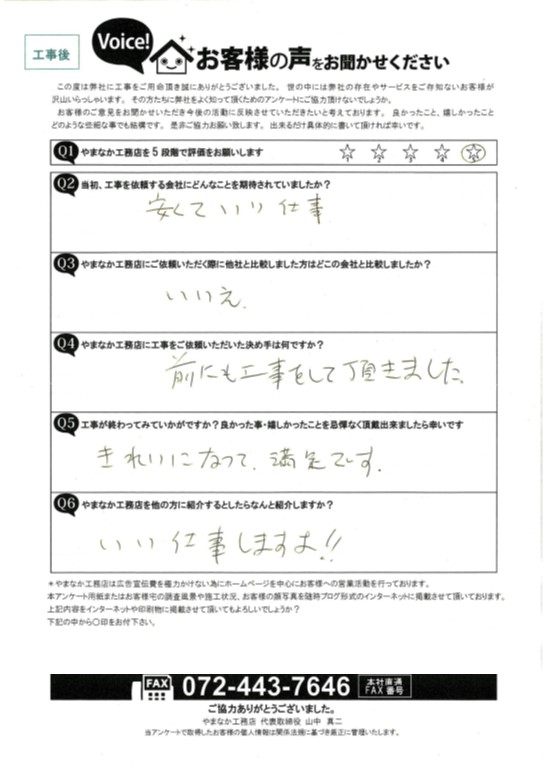 工事後
Voice!
お客様の声をお聞かせください
この度は弊社に工事をご用命頂き誠にありがとうございました。 世の中には弊社の存在やサービスをご存知ないお客様が
沢山いらっしゃいます。 その方たちに弊社をよく知って頂くためのアンケートにご協力頂けないでしょうか。
お客様のご意見をお聞かせいただき今後の活動に反映させていただきたいと考えております。 良かったこと、嬉しかったこと
どのような些細な事でも結構です。 是非ご協力お願い致します。 出来るだけ具体的に書いて頂ければ幸いです。
Q1 やまなか工務店を5段階で評価をお願いします
1 2 3 4 5
Q2 当初、工事を依頼する会社にどんなことを期待されていましたか?
安くていい仕事
Q3 やまなか工務店にご依頼いただく際に他社と比較しました方はどこの会社と比較しましたか?
いいえ.
Q4 やまなか工務店に工事をご依頼いただいた決め手は何ですか?
前にも工事をして頂きました。
Q5 工事が終わってみていかがですか?良かった事・嬉しかったことを忌憚なく頂戴出来ましたら幸いです
きれいになって、満足です.
Q6 やまなか工務店を他の方に紹介するとしたらなんと紹介しますか?
いい仕事しますよ!!
*やまなか工務店は広告宣伝費を極力かけない為にホームページを中心にお客様への営業活動を行っております。
本アンケート用紙またはお客様宅の調査風景や施工状況、お客様の顔写真を随時ブログ形式のインターネットに掲載させて頂いております。
上記内容をインターネットや印刷物に掲載させて頂いてもよろしいでしょうか?
下記の中から〇印をお付下さい。
FAX 072-443-7646 本社直通FAX番号
ご協力ありがとうございました。
やまなか工務店 代表取締役 山中 真二
当アンケートで取得したお客様の個人情報は関係法規に基づき厳正に管理いたします。